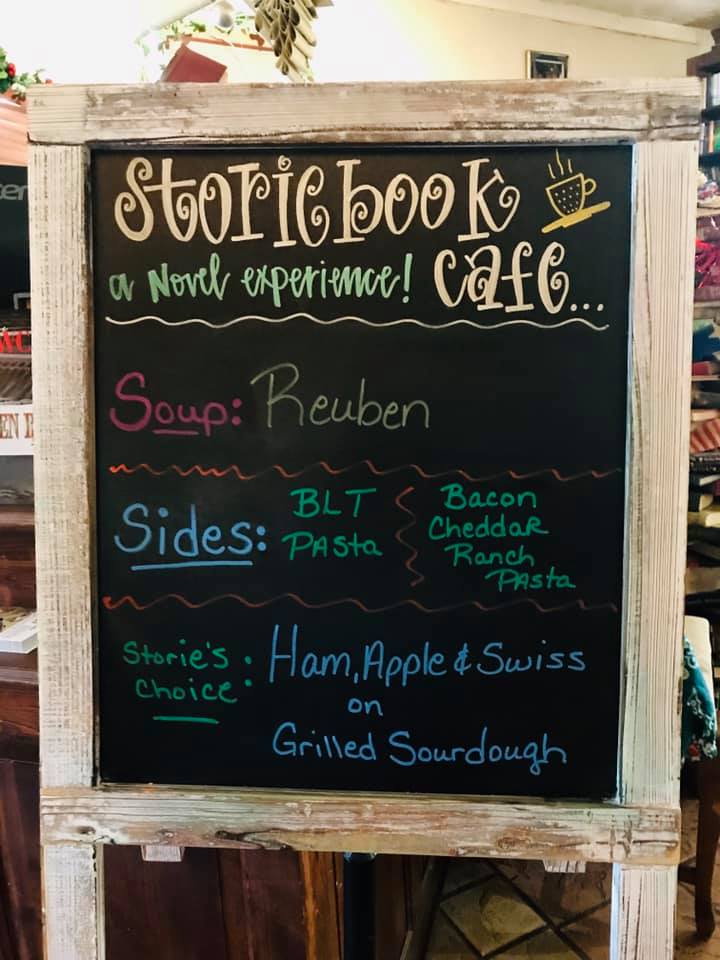 Storiebook
a Novel experience! cafe...
Soup: Reuben
Sides:
BLT
PAsta
Bacon
Cheddar
Ranch
PAsta
Storie's
Choice:
Ham, Apple & Swiss
on
Grilled Sourdough